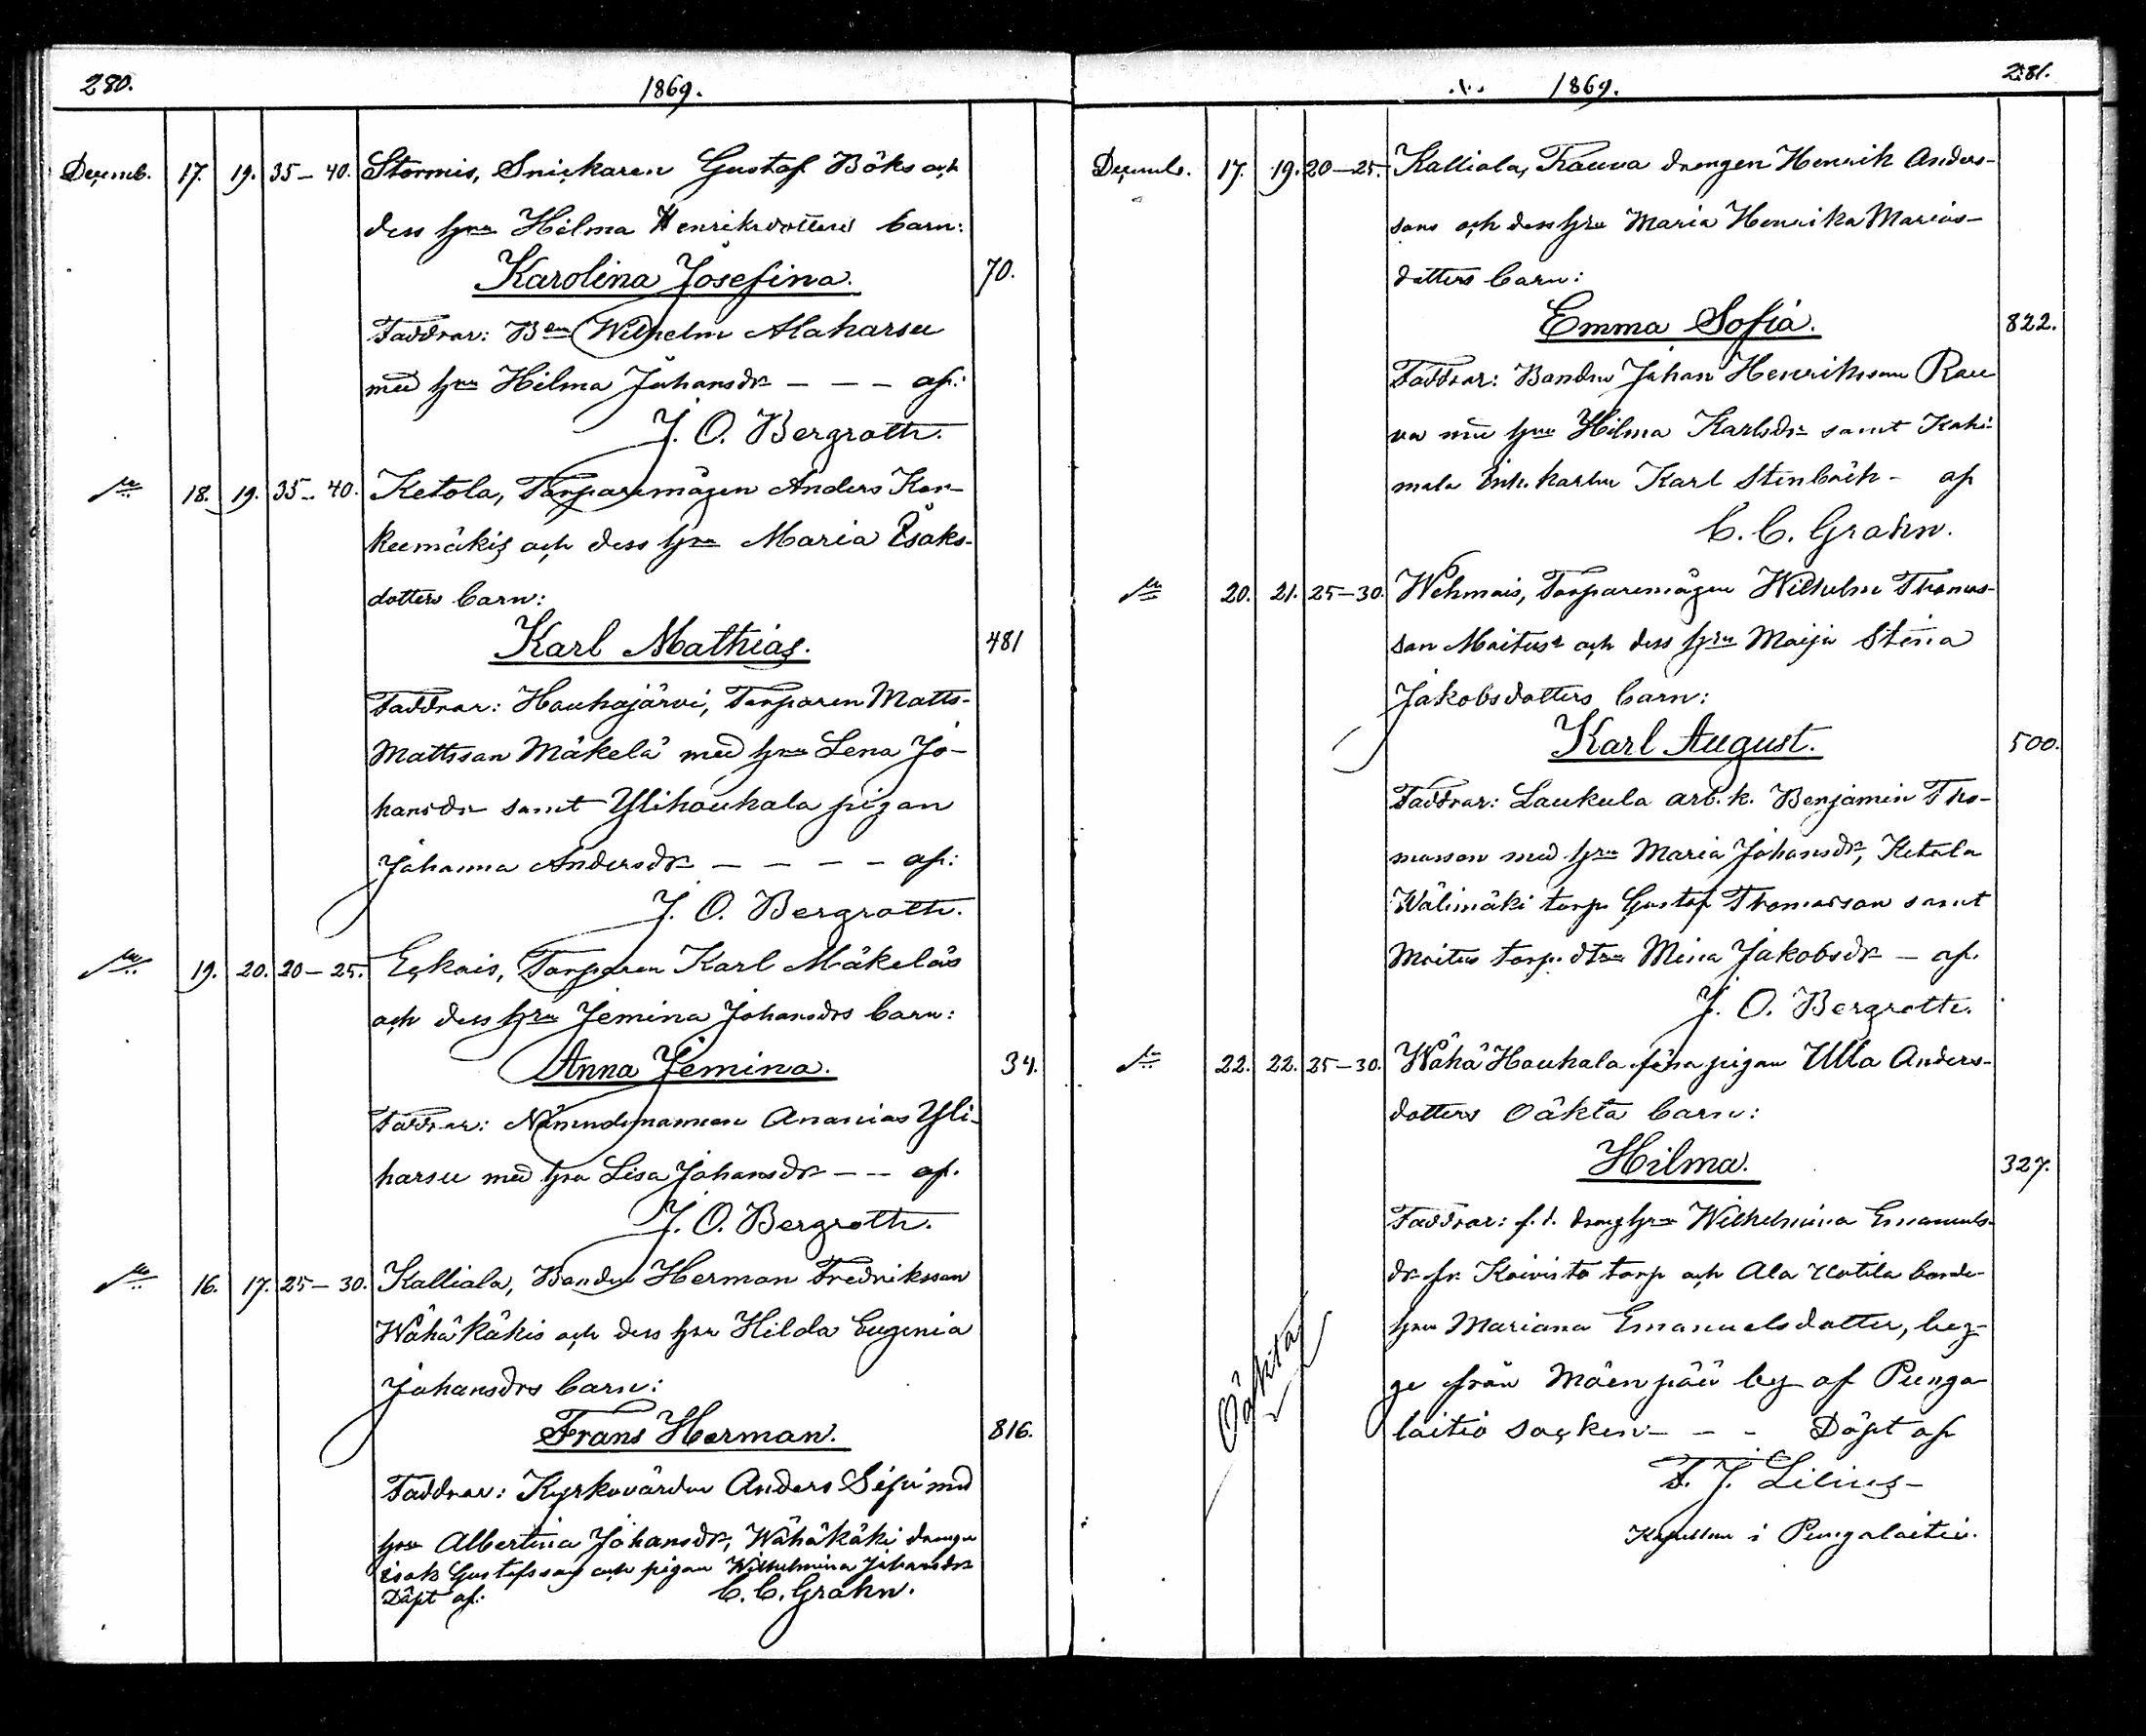 280.
1869.
Decemb. 17. 19. 35–40. Stormis, Snickaren Gustaf Böks och
dess hru Hilma Henriksdotters barn:
Karolina Josefina. 70.
Faddrar: Bdn Wilhelm Alaharsu
med hru Hilma Johansdr – – – af:
J. O. Bergroth.
18. 19. 35–40. Ketola, Torparemågen Anders Kor-
keemäkis och dess hru Maria Isaks-
dotters barn:
Karl Mathias. 481
Faddrar: Houhajärvi, Torparen Matts
Mattsson Mäkelä med hru Lena Jo-
hansdr samt Ylihouhala pigan
Johanna Andersdr – – – – af:
J. O. Bergroth.
19. 20. 20–25. Eckois, Torparen Karl Mäkeläs
och dess hru Jemina Johansdrs barn:
Anna Jemina. 34.
Faddrar: Nämndemannen Ananias Yli-
harsu med hru Lisa Johansdr – – af.
J. O. Bergroth.
16. 17. 25–30. Kalliala, Bonden Herman Fredriksson
Wähäkäkis och dess hru Hilda Eugenia
Johansdrs barn:
Frans Herman. 816.
Faddrar: Kyrkovärden Anders Sipi med
hru Albertina Johansdr, Wähäkäki drengen
Isak Gustafsson och pigan Wilhelmina Johansdr
Döpt af: C. C. Grahn.
1869.
281.
Decemb. 17. 19. 20–25. Kalliala, Rauva drengen Henrik Anders-
sons och dess hru Maria Henrika Marias-
dotters barn:
Emma Sofia. 822.
Faddrar: Bonden Johan Henriksson Rau
va med hru Hilma Karlsdr samt Kahi-
mala Enk. karlen Karl Stenbäck – af
C. C. Grahn.
20. 21. 25–30. Wehmais, Torparemågen Wilhelm Thomas-
son Moitus och dess hru Maija Stina
Jakobsdotters barn:
Karl August. 500.
Faddrar: Laukula arb.k. Benjamin Tho-
masson med hru Maria Johansdr, Ketola
Wälimäki torp. Gustaf Thomasson samt
Moitus torp. dtrn Mina Jakobsdr – af.
J. O. Bergroth.
22. 22. 25–30. Wähä Houhala pigan Ulla Anders-
dotters oäkta barn:
Hilma. 327.
Faddrar: f.d. dreng hru Wilhelmina Emanuels-
dr fr. Koivisto torp och Ala Uotila bonde-
hru Mariana Emanuelsdotter, beg-
ge från Mäenpää by af Punga
laitio socken – – – Döpt af
Oäkta
F. J. Lilius –
Kapellan i Pungalaitio.